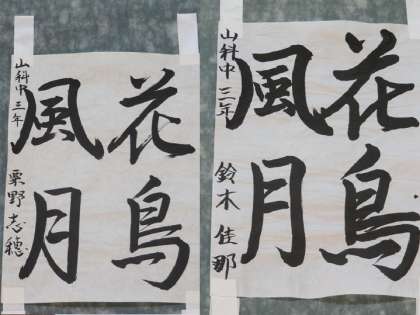 花鳥
風月
山科中三年
栗野志穂
花鳥
風月
山科中三年
鈴木佳那